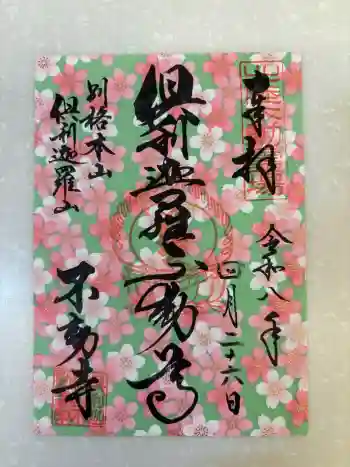 奉拝
令和八年
四月二十六日
倶利迦羅不動尊
別格本山
倶利迦羅山
不動寺